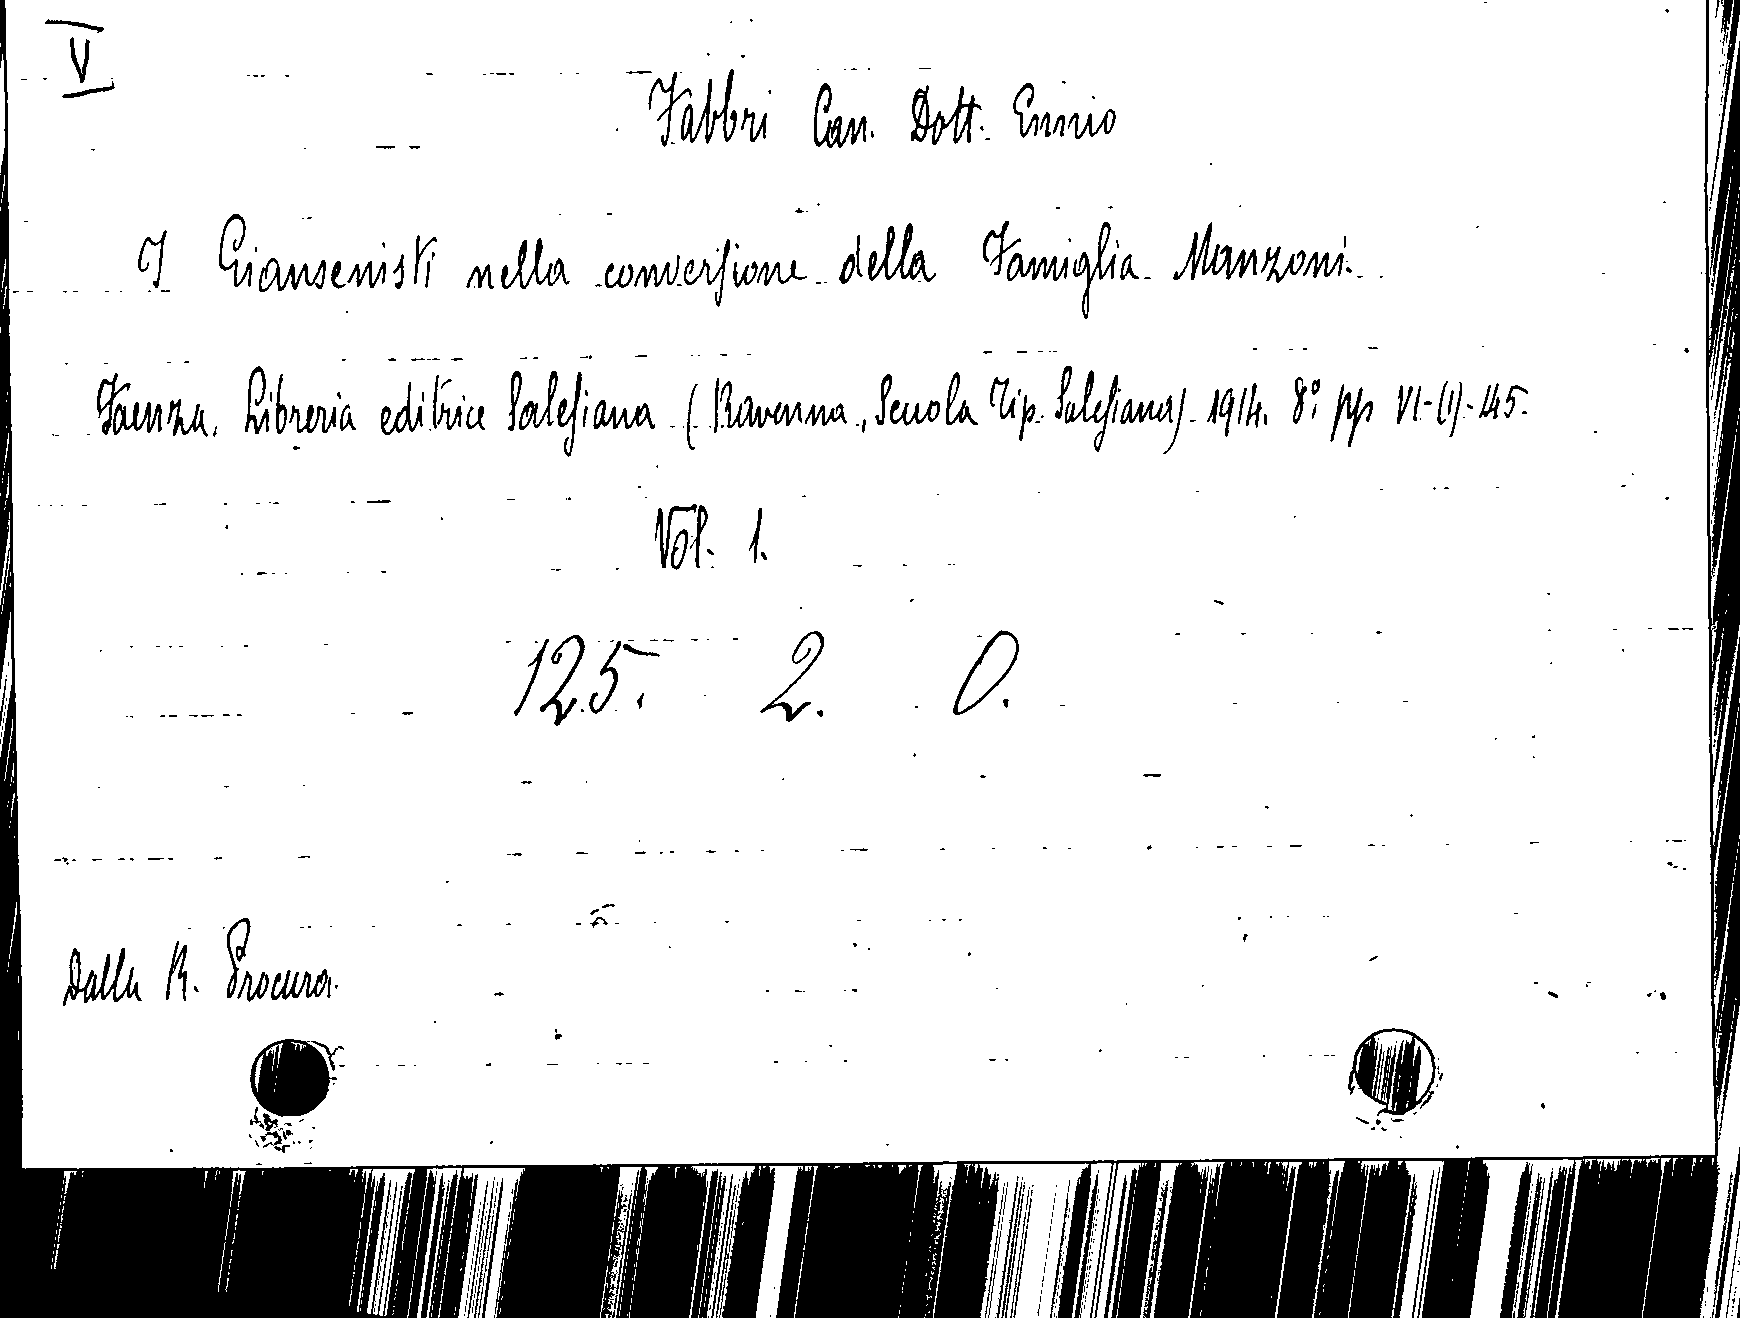 V
Fabbri Can. Dott. Ennio
I Giansenisti nella conversione della Famiglia Manzoni.
Faenza, Libreria editrice Salesiana (Ravenna, Scuola Tip. Salesiana) 1914. 8°. pp VI-(1)-145.
Vol. 1.
125. 2. 0.
Dalla R. Procura.